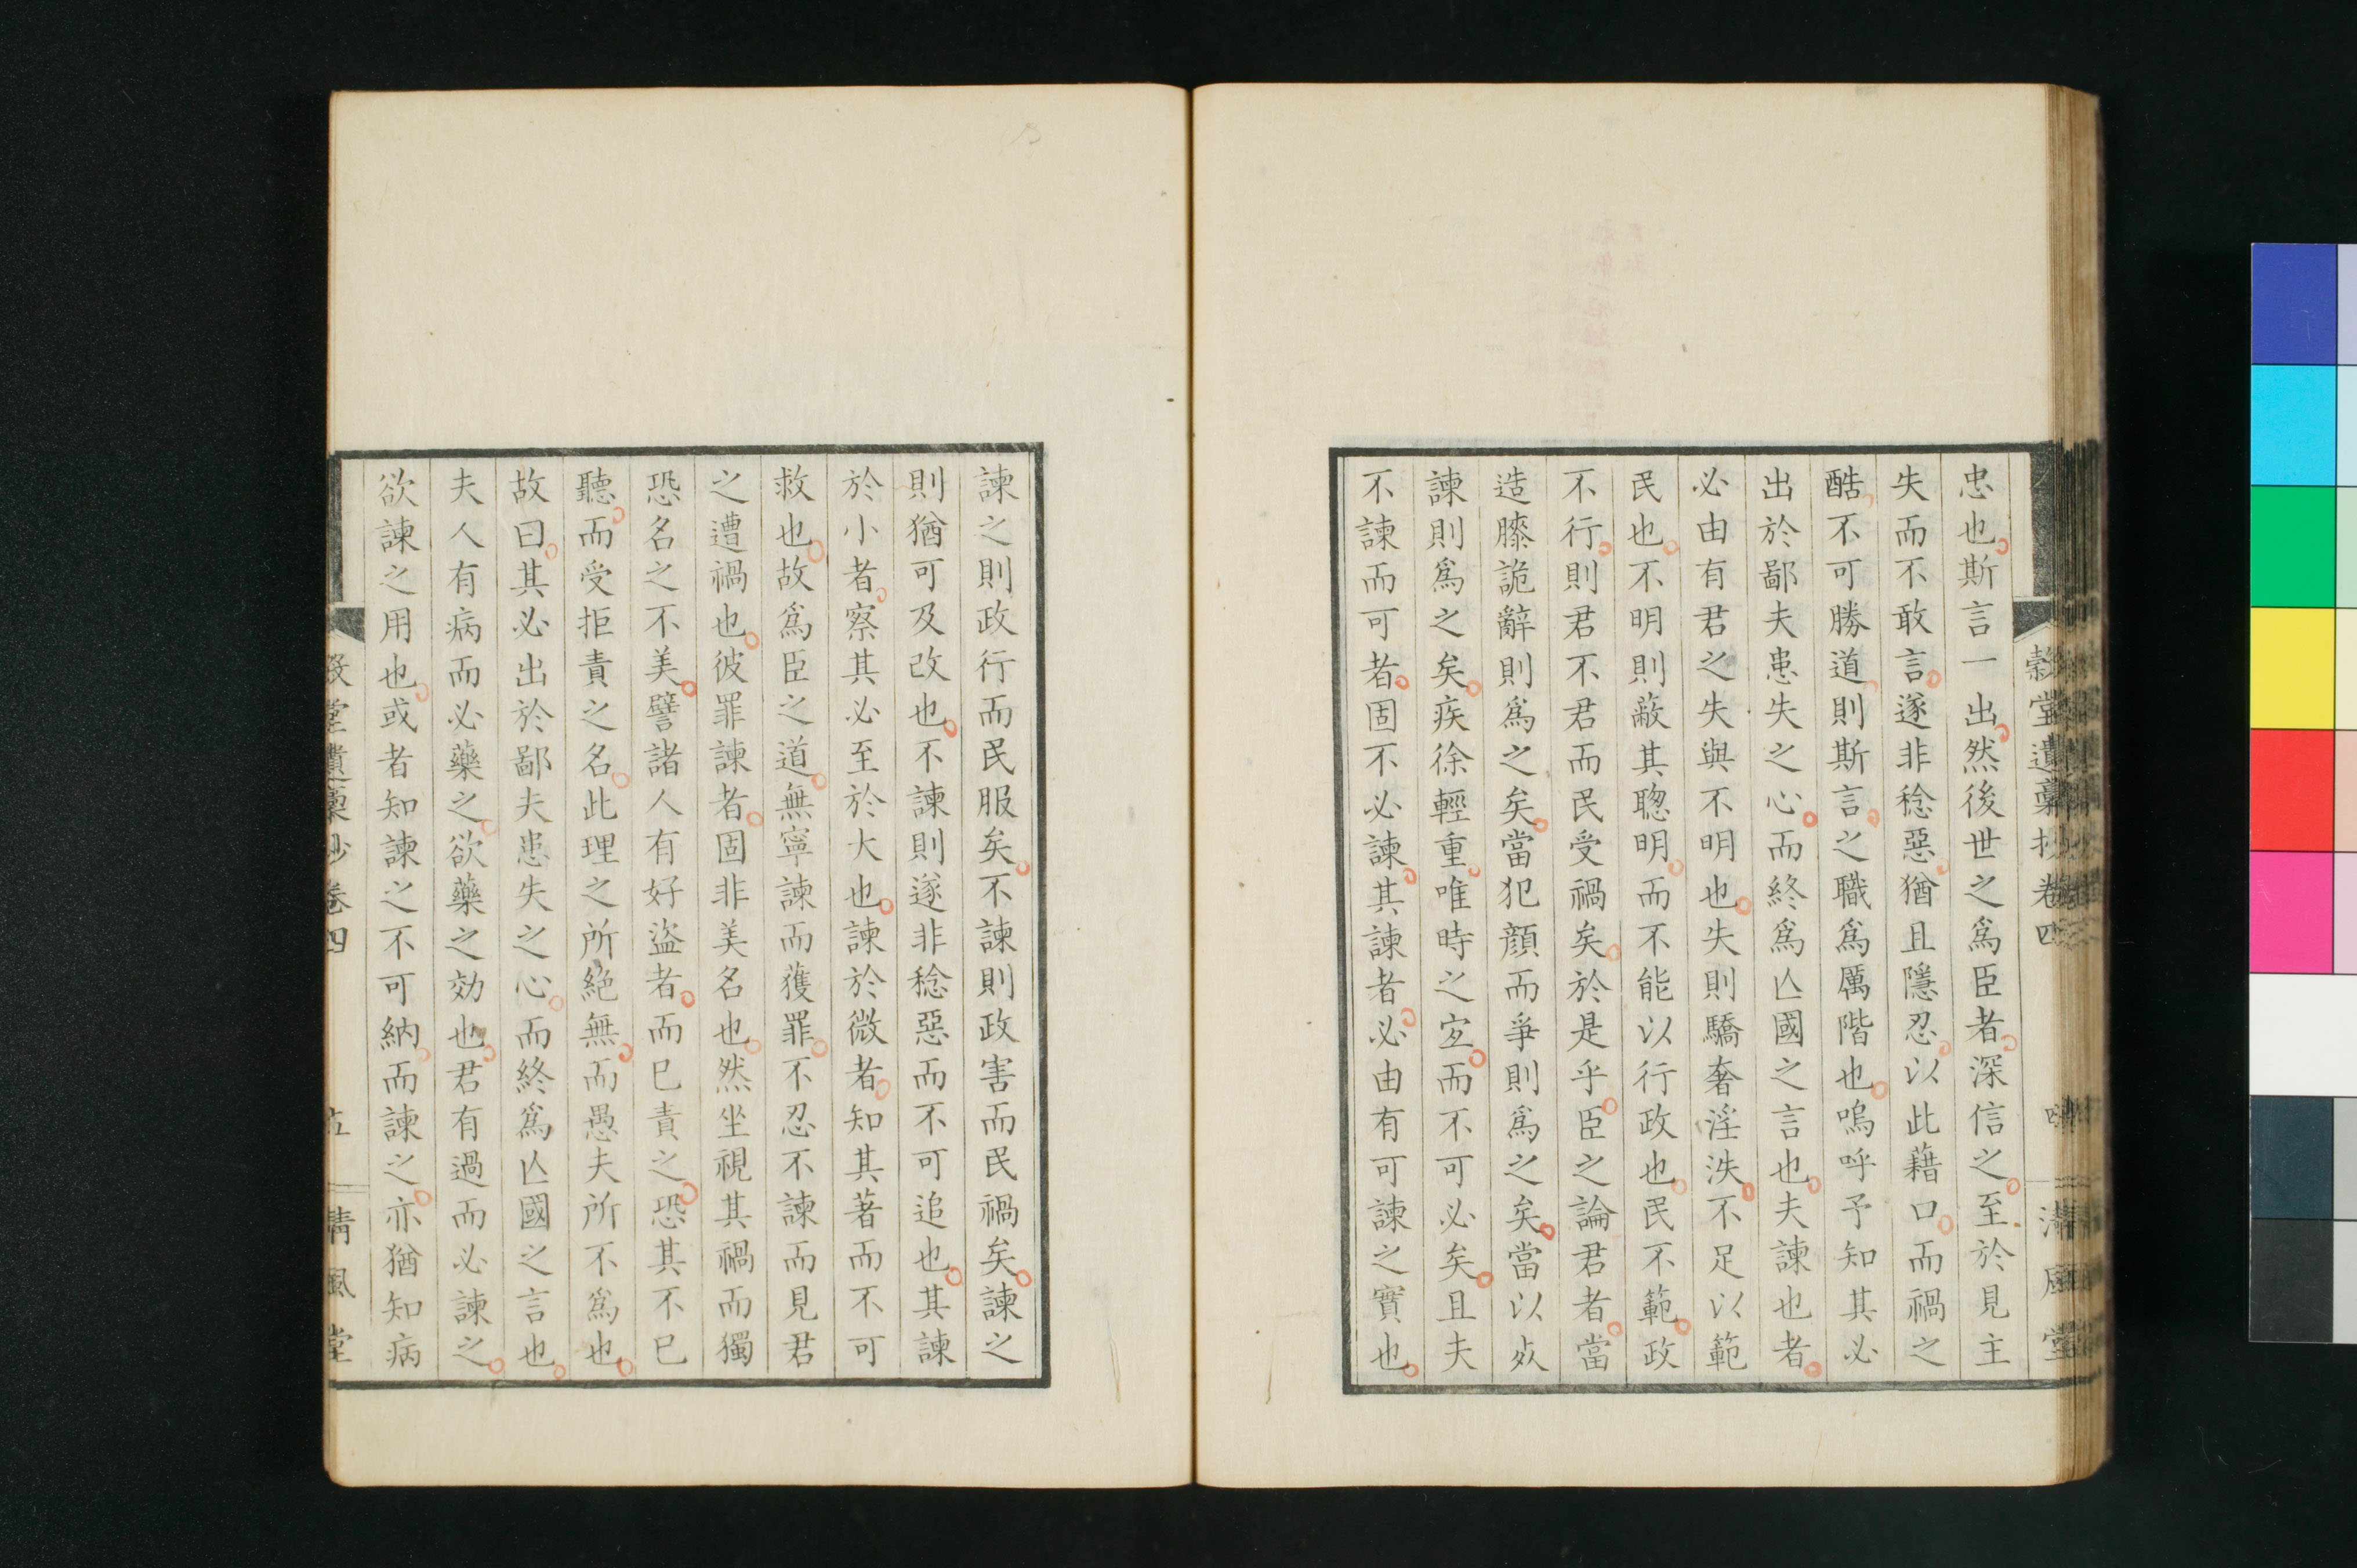 忠也斯言一出然後世之爲臣者深信之至於見主
失而不敢言遂非稔惡猶且隱忍以此藉口而禍之
酷不可勝道則斯言之職爲厲階也嗚呼予知其必
出於鄙夫患失之心而終爲亾國之言也夫諫也者
必由有君之失與不明也失則驕奢淫泆不足以範
民也不明則蔽其聦明而不能以行政也民不範政
不行則君不君而民受禍矣於是乎臣之論君者當
造膝詭辭則爲之矣當犯顔而爭則爲之矣當以𠈇
諫則爲之矣疾徐輕重唯時之宐而不可必矣且夫
不諫而可者固不必諫其諫者必由有可諫之實也
諫之則政行而民服矣不諫則政害而民禍矣諫之
則猶可及改也不諫則遂非稔惡而不可追也其諫
於小者察其必至於大也諫於微者知其著而不可
救也故爲臣之道無寧諫而獲罪不忍不諫而見君
之遭禍也彼罪諫者固非美名也然坐視其禍而獨
恐名之不美譬諸人有好盜者而已責之恐其不已
聽而受拒責之名此理之所絶無而愚夫所不爲也
故曰其必出於鄙夫患失之心而終爲亾國之言也
夫人有病而必藥之欲藥之効也君有過而必諫之
欲諫之用也或者知諫之不可納而諫之亦猶知病